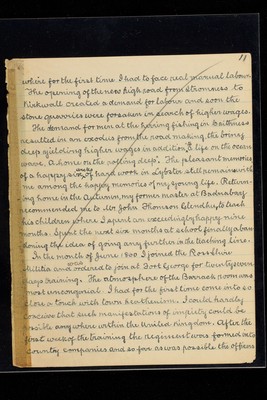 11
where for the first time I had to face real manual labour.
The opening of the new high road from Stromness to
Kirkwall created a demand for labour and soon the
stone quarries were forsaken in search of higher wages.
The demand for men at the herring fishing in Caithness
resulted in an exodus from the road making, the briny
deep yielding higher wages in addition to "A life on the ocean
wave, A home on the rolling deep". The pleasant memories
of a happy six weeks hard work in Lybster still remains with
me among the happy memories of my young life. Return-
ing home in the Autumn, my former master at
recommended me to Mr John Thomson to teach
his children where I spent an exceedingly happy nine
months. Spent the next six months at school finally aban-
doning the idea of going any further in the teaching line.
In the month of June 1860 I joined the Rosshire
Militia and was ordered to join at Fort George for twenty seven
days training. The atmosphere of the Barrack room was
most uncongenial. I had for the first time come into so
close a touch with town heathenism. I could hardly
conceive that such manifestations of impiety could be
possible anywhere within the United Kingdom. After the
first week of the training the regiment was formed into
country companies and so far as was possible the officers